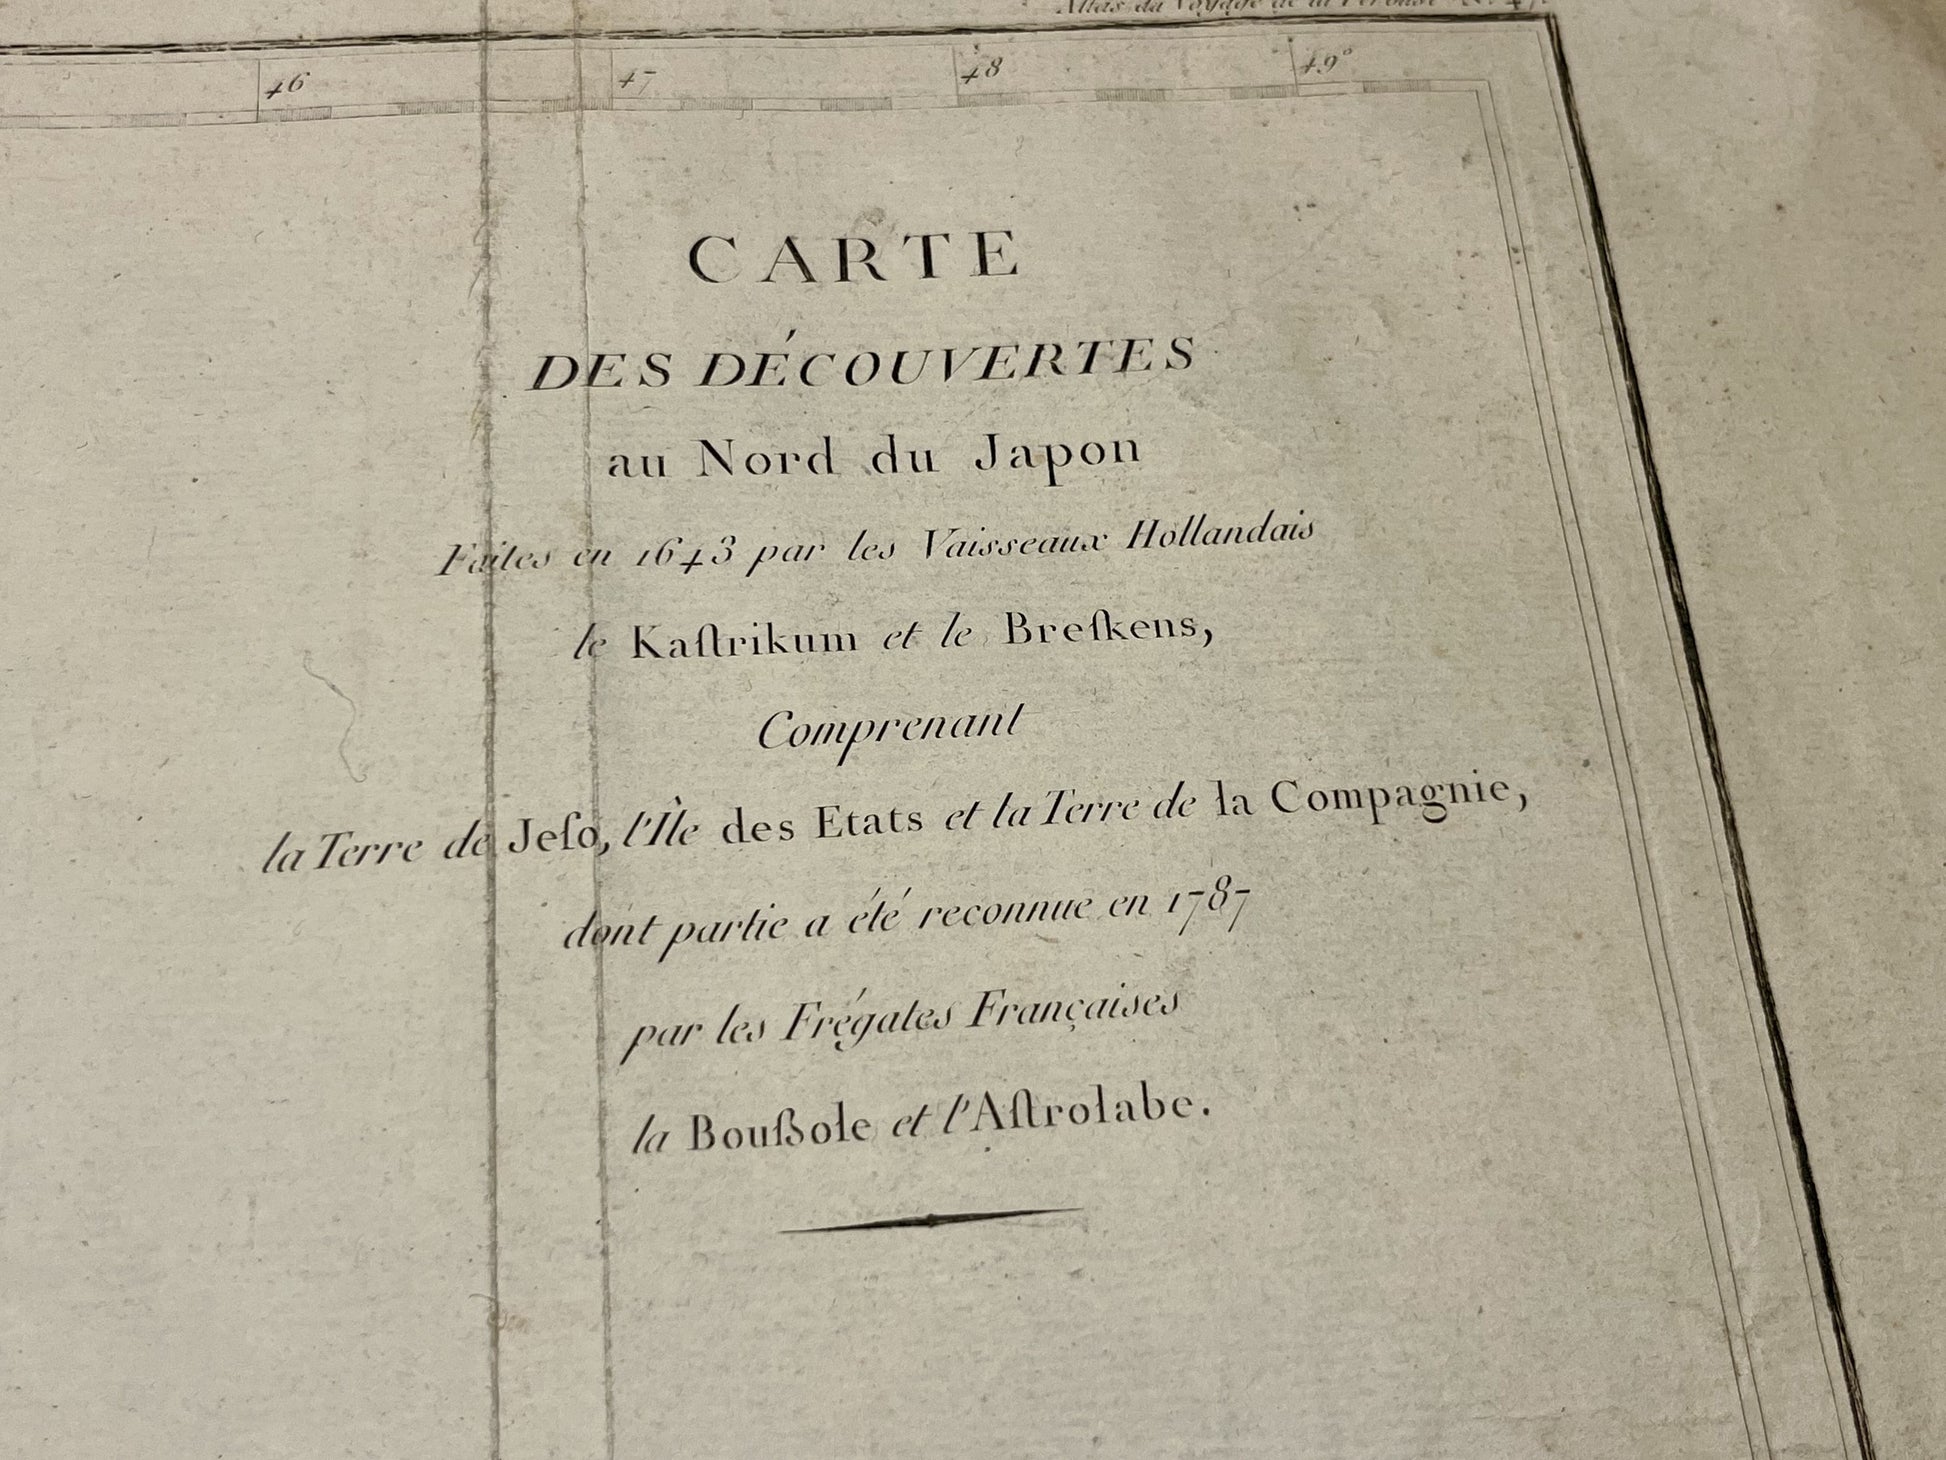 Atlas du Voyage de la Pérouse N.º 47.
46 47 48 49°
CARTE
DES DÉCOUVERTES
au Nord du Japon
Faites en 1643 par les Vaisseaux Hollandais
le Kaſtrikum et le Breſkens,
Comprenant
la Terre de Jeſo, l'Île des Etats et la Terre de la Compagnie,
dont partie a été reconnue en 1787
par les Frégates Françaises
la Bouſsole et l'Aſtrolabe.